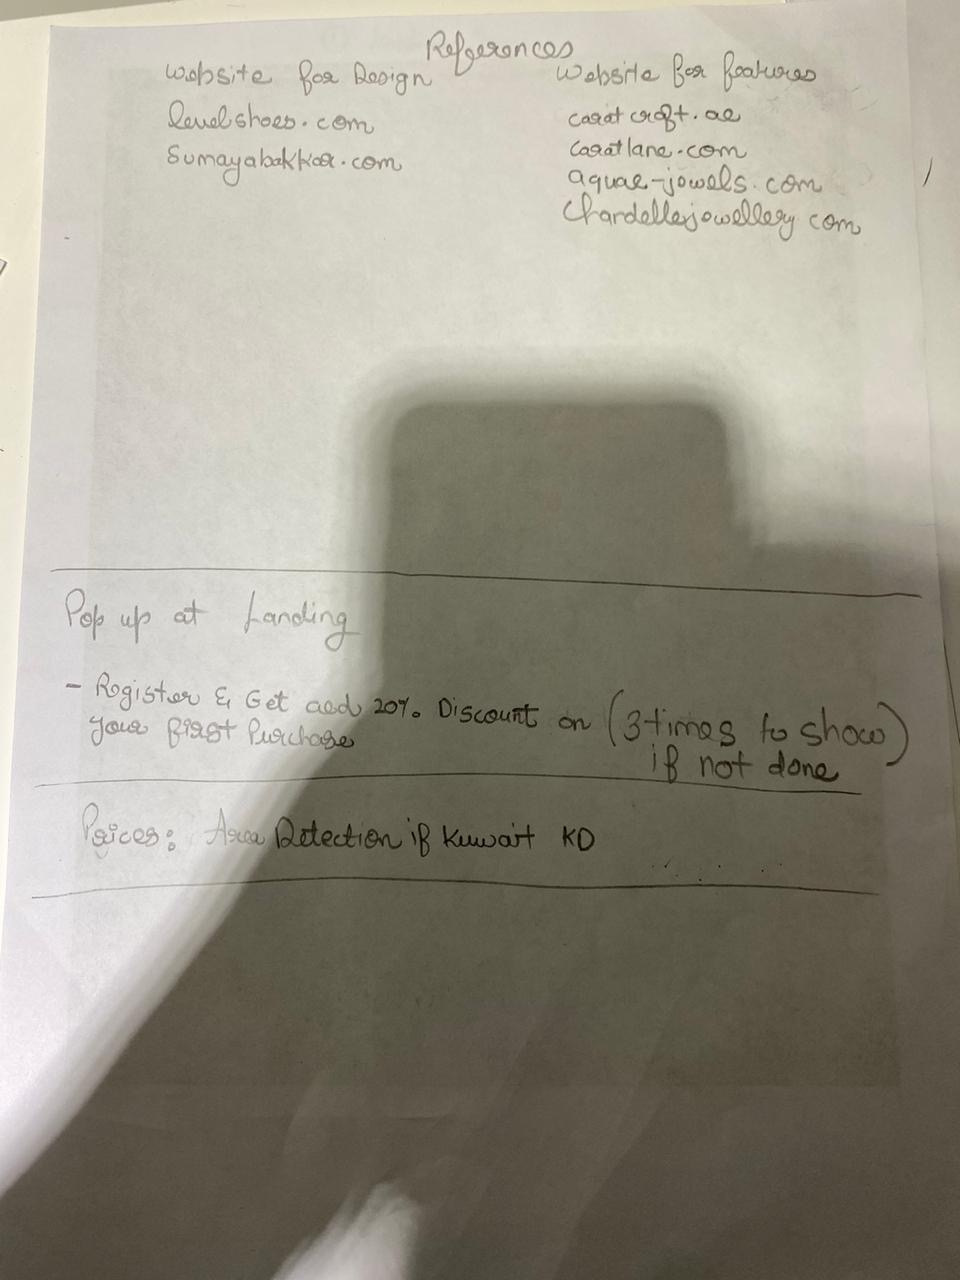 References
Website for Design
levelshoes.com
Sumayabakkar.com
Website for features
carat craft.ae
Caratlane.com
aquae-jewels.com
Chardellejewellery com
Pop up at Landing
- Register & Get aed 20% Discount on (3 times to show)
your first Purchase
if not done
Prices: Area Detection if Kuwait KD